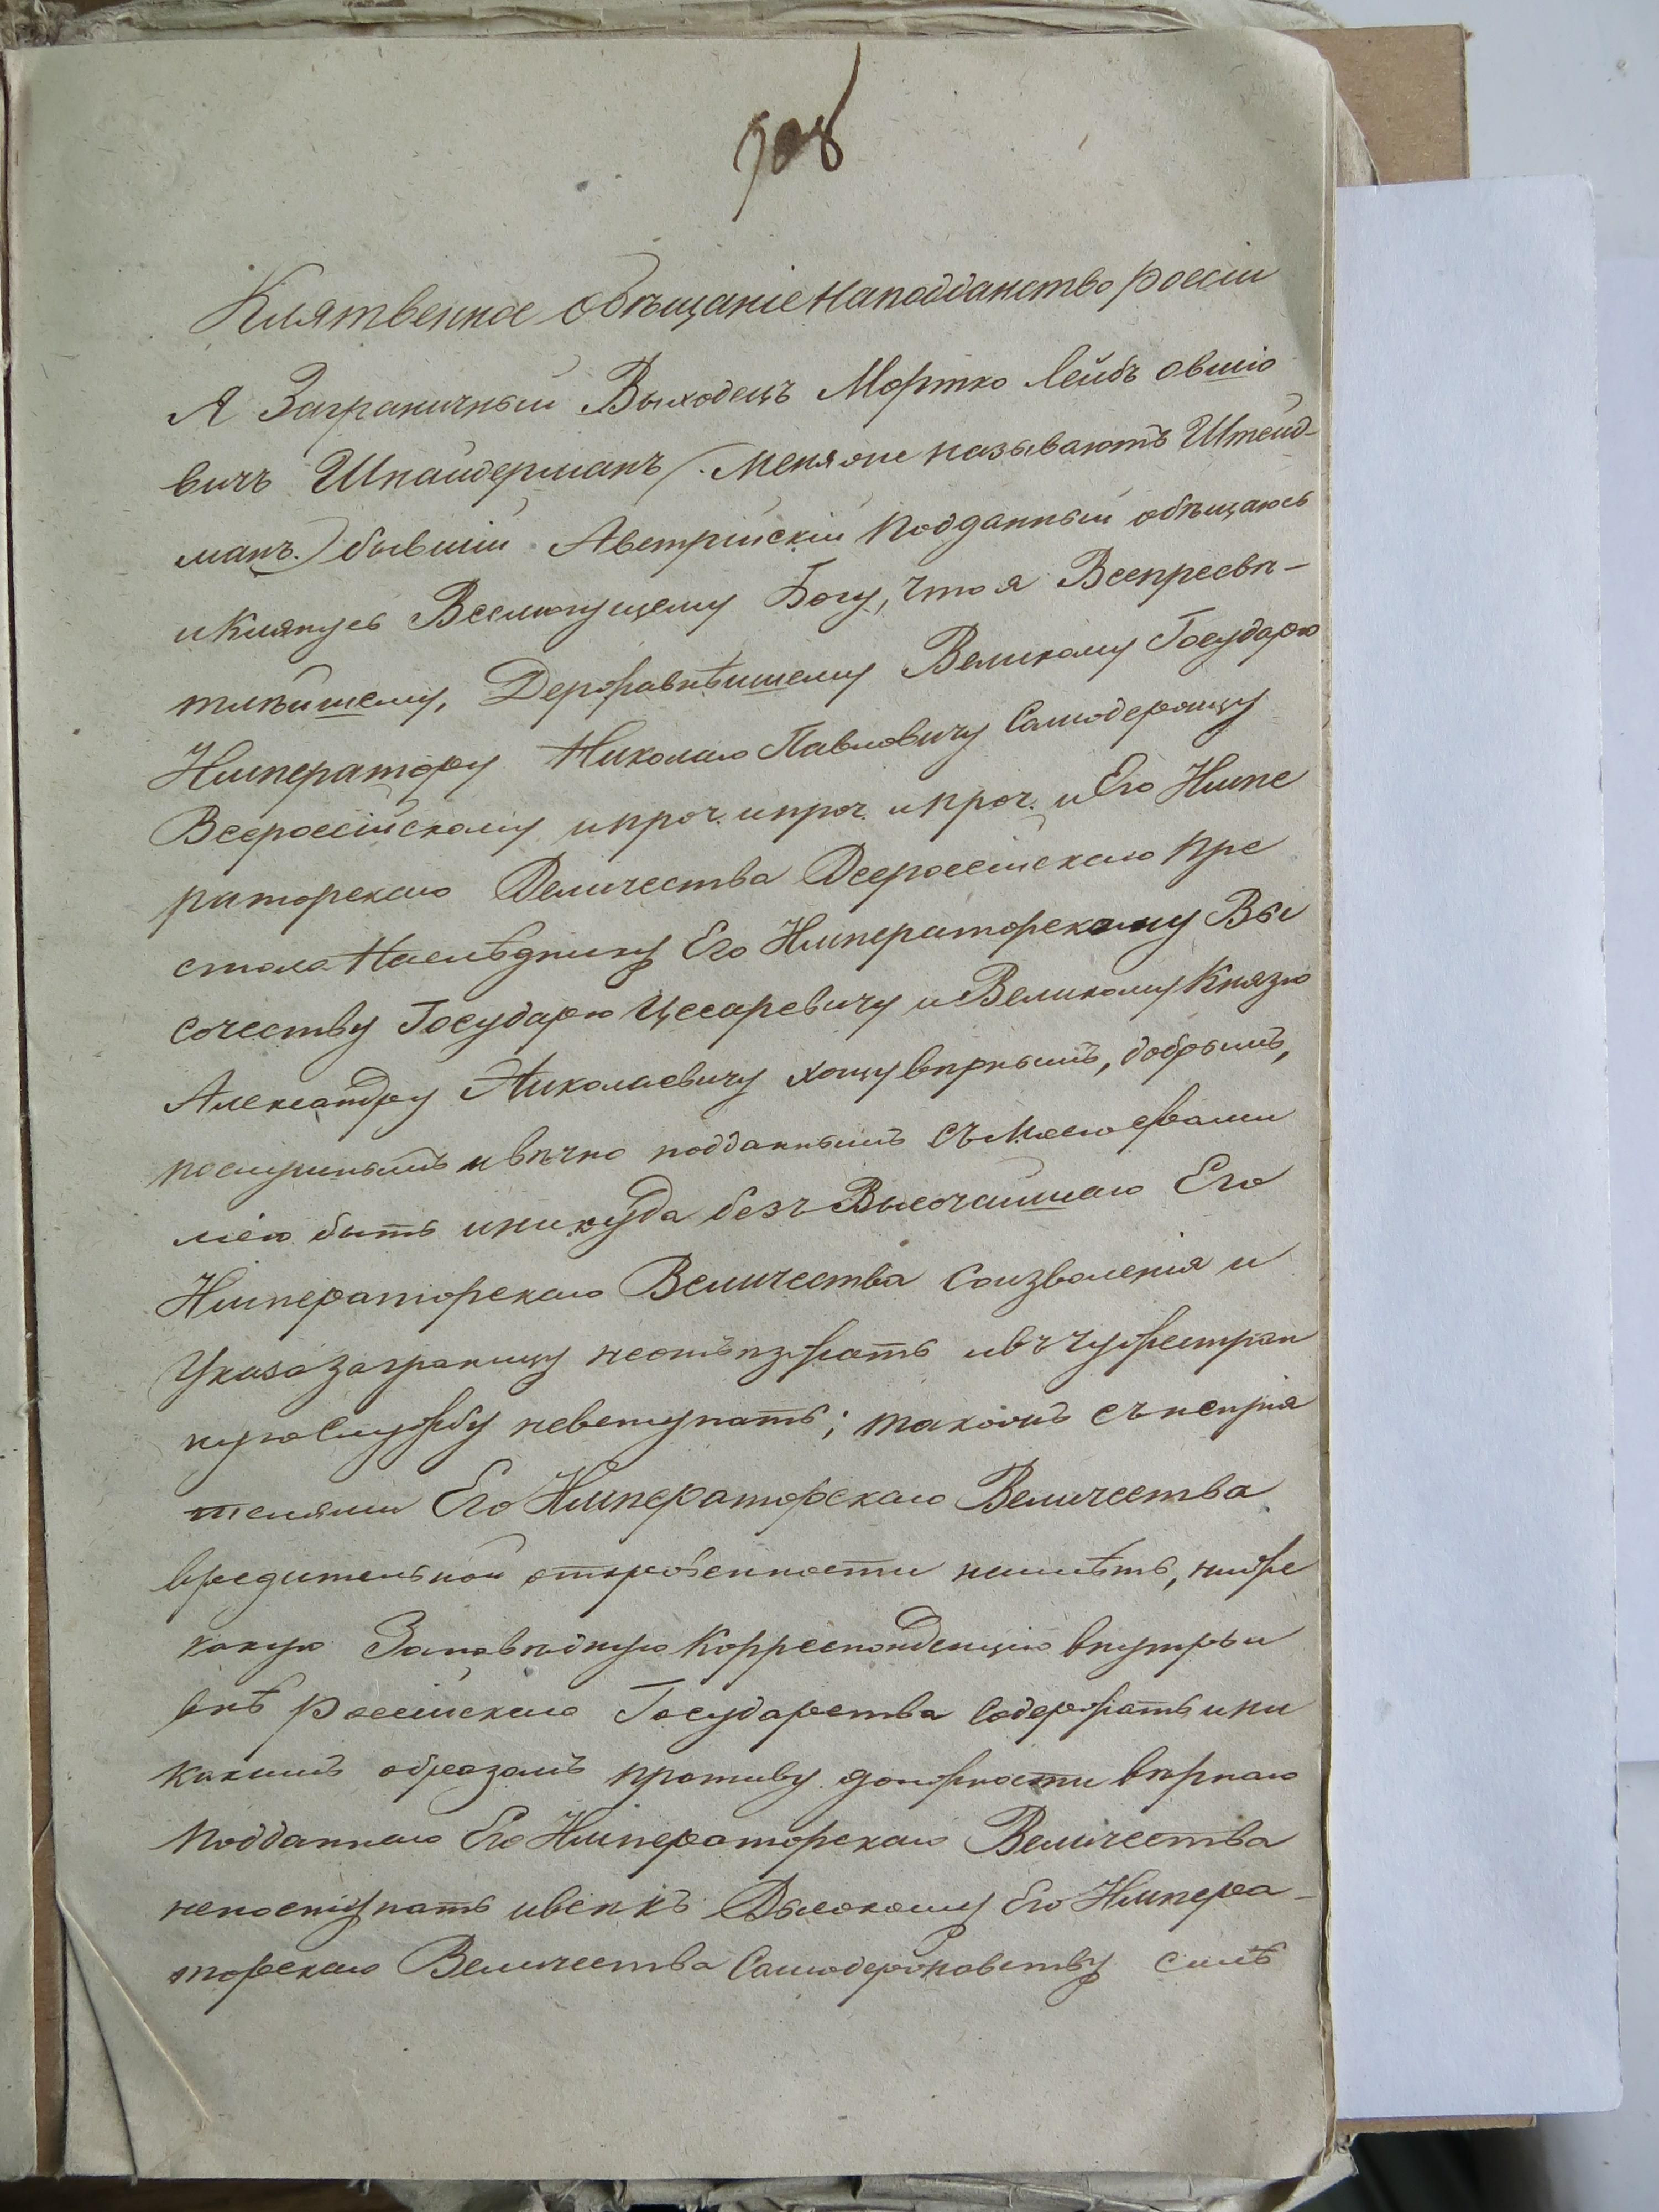 908
Клятвенное обѣщаніе на подданство россіи
Я Заграничный Выходецъ Мортко Лейбъ Овшіо
вичъ Шпайдерманъ (меня же называютъ Штейд-
манъ.) бывшій Австрійскій подданный обѣщаюсь
и Клянусь Всемогущему Богу, что я Всепресвѣ-
тлѣйшему, Державнѣйшему Великому Государю
Императору Николаю Павловичу Самодержцу
Всероссійскому и проч. и проч. и проч. и Его Импе
раторскаго Величества Всероссійскаго пре
стола Наслѣднику Его Императорскому Вы
сочеству Государю Цесаревичу и Великому Князю
Александру Николаевичу хощу вѣрнымъ, добрымъ,
послушнымъ и вѣчно подданнымъ съ моею фами
ліею быть и никуда безъ Высочайшаго Его
Императорскаго Величества Соизволенія и
Указа заграницу неотъѣзжать и въ чужестран
ную Службу невступать; такожъ съ непрія
телями Его Императорскаго Величества
вредительной откровенности неимѣть, ниже
какую Заповѣдную Корреспонденцію внутрь и
внѣ россійскаго Государства Содержать и ни
какимъ образомъ противу должности вѣрнаго
подданнаго Его Императорскаго Величества
непоступать и всѣ къ Высокому Его Импера-
торскаго Величества Самодержавству силѣ